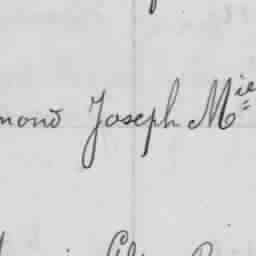 mond Joseph Mie